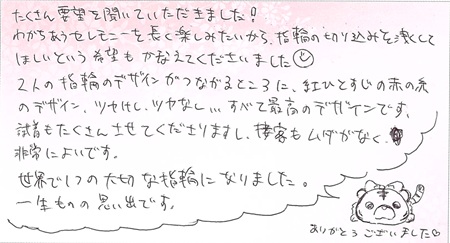 たくさん要望を聞いていただきました!
わかちあうセレモニーを長く楽しみたいから、指輪の切り込みを浅くして
ほしいという希望もかなえてくださいました
2人の指輪のデザインがつながるところに、紅ひとすじの赤の糸
のデザイン、ツヤけし、ツヤなし… すべて最高のデザインです。
試着もたくさんさせてくださりますし、接客もムダがなく、
非常によいです。
世界で1つの大切な指輪になりました。
一生ものの思い出です。
ありがとうございました♡